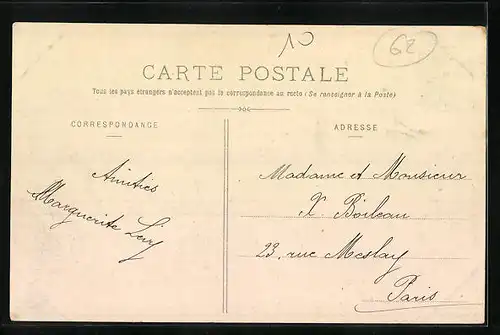 10
62
CARTE POSTALE
Tous les pays étrangers n'acceptent pas la correspondance au recto (Se renseigner à la Poste)
CORRESPONDANCE
Amitiés
Marguerite Levy
ADRESSE
Madame et Monsieur
X Boileau
23, rue Meslay
Paris